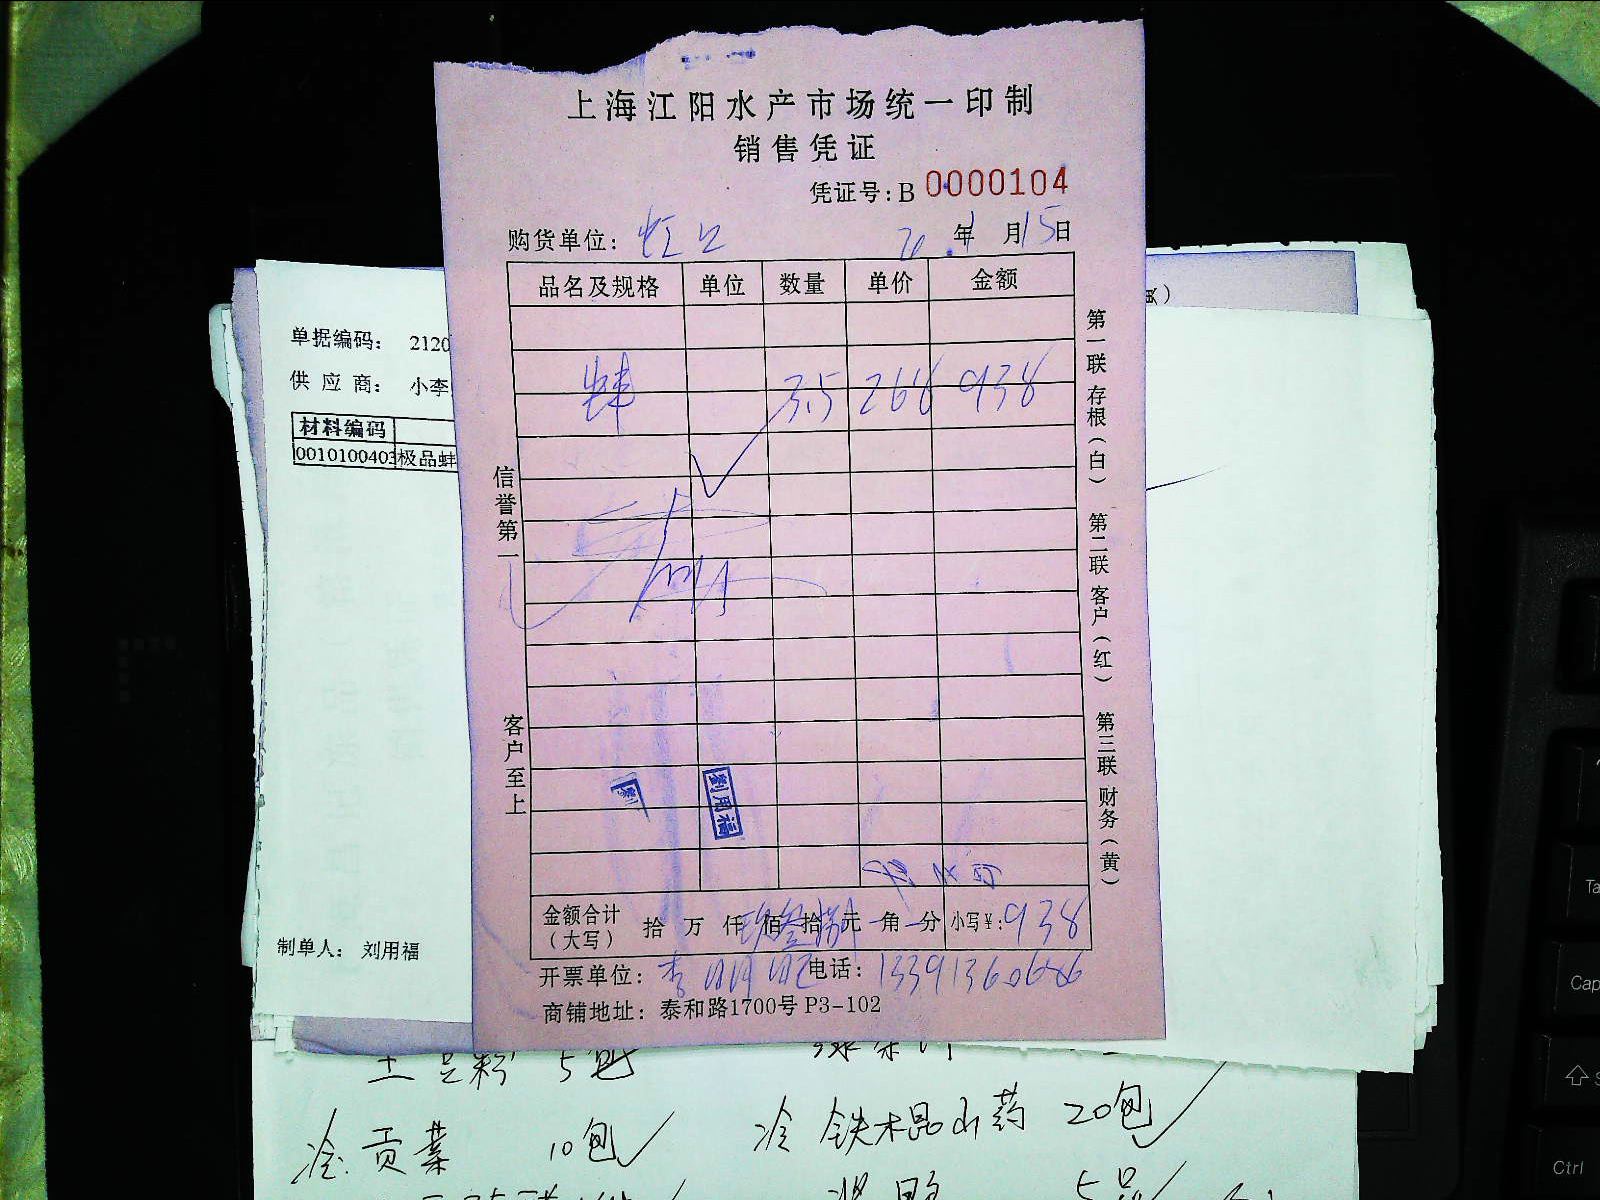 上海江阳水产市场统一印制
销售凭证
凭证号:B 0000104
购货单位: 虹口 20 年 1 月 15 日
品名及规格 单位 数量 单价 金额
蚌 3.5 268 938
信誉第一
客户至上
第一联 存根(白) 第二联 客户(红) 第三联 财务(黄)
刘用福
金额合计(大写) 拾 万 仟 玖佰叁拾捌元 角 分 小写¥:938
开票单位: 李 电话: 13391360686
商铺地址: 泰和路1700号 P3-102
单据编码: 2120
供 应 商: 小李
材料编码
0010100403 极品蚌
制单人: 刘用福
土豆粉 5包
冷贡菜 10包
冷 铁木棍山药 20包